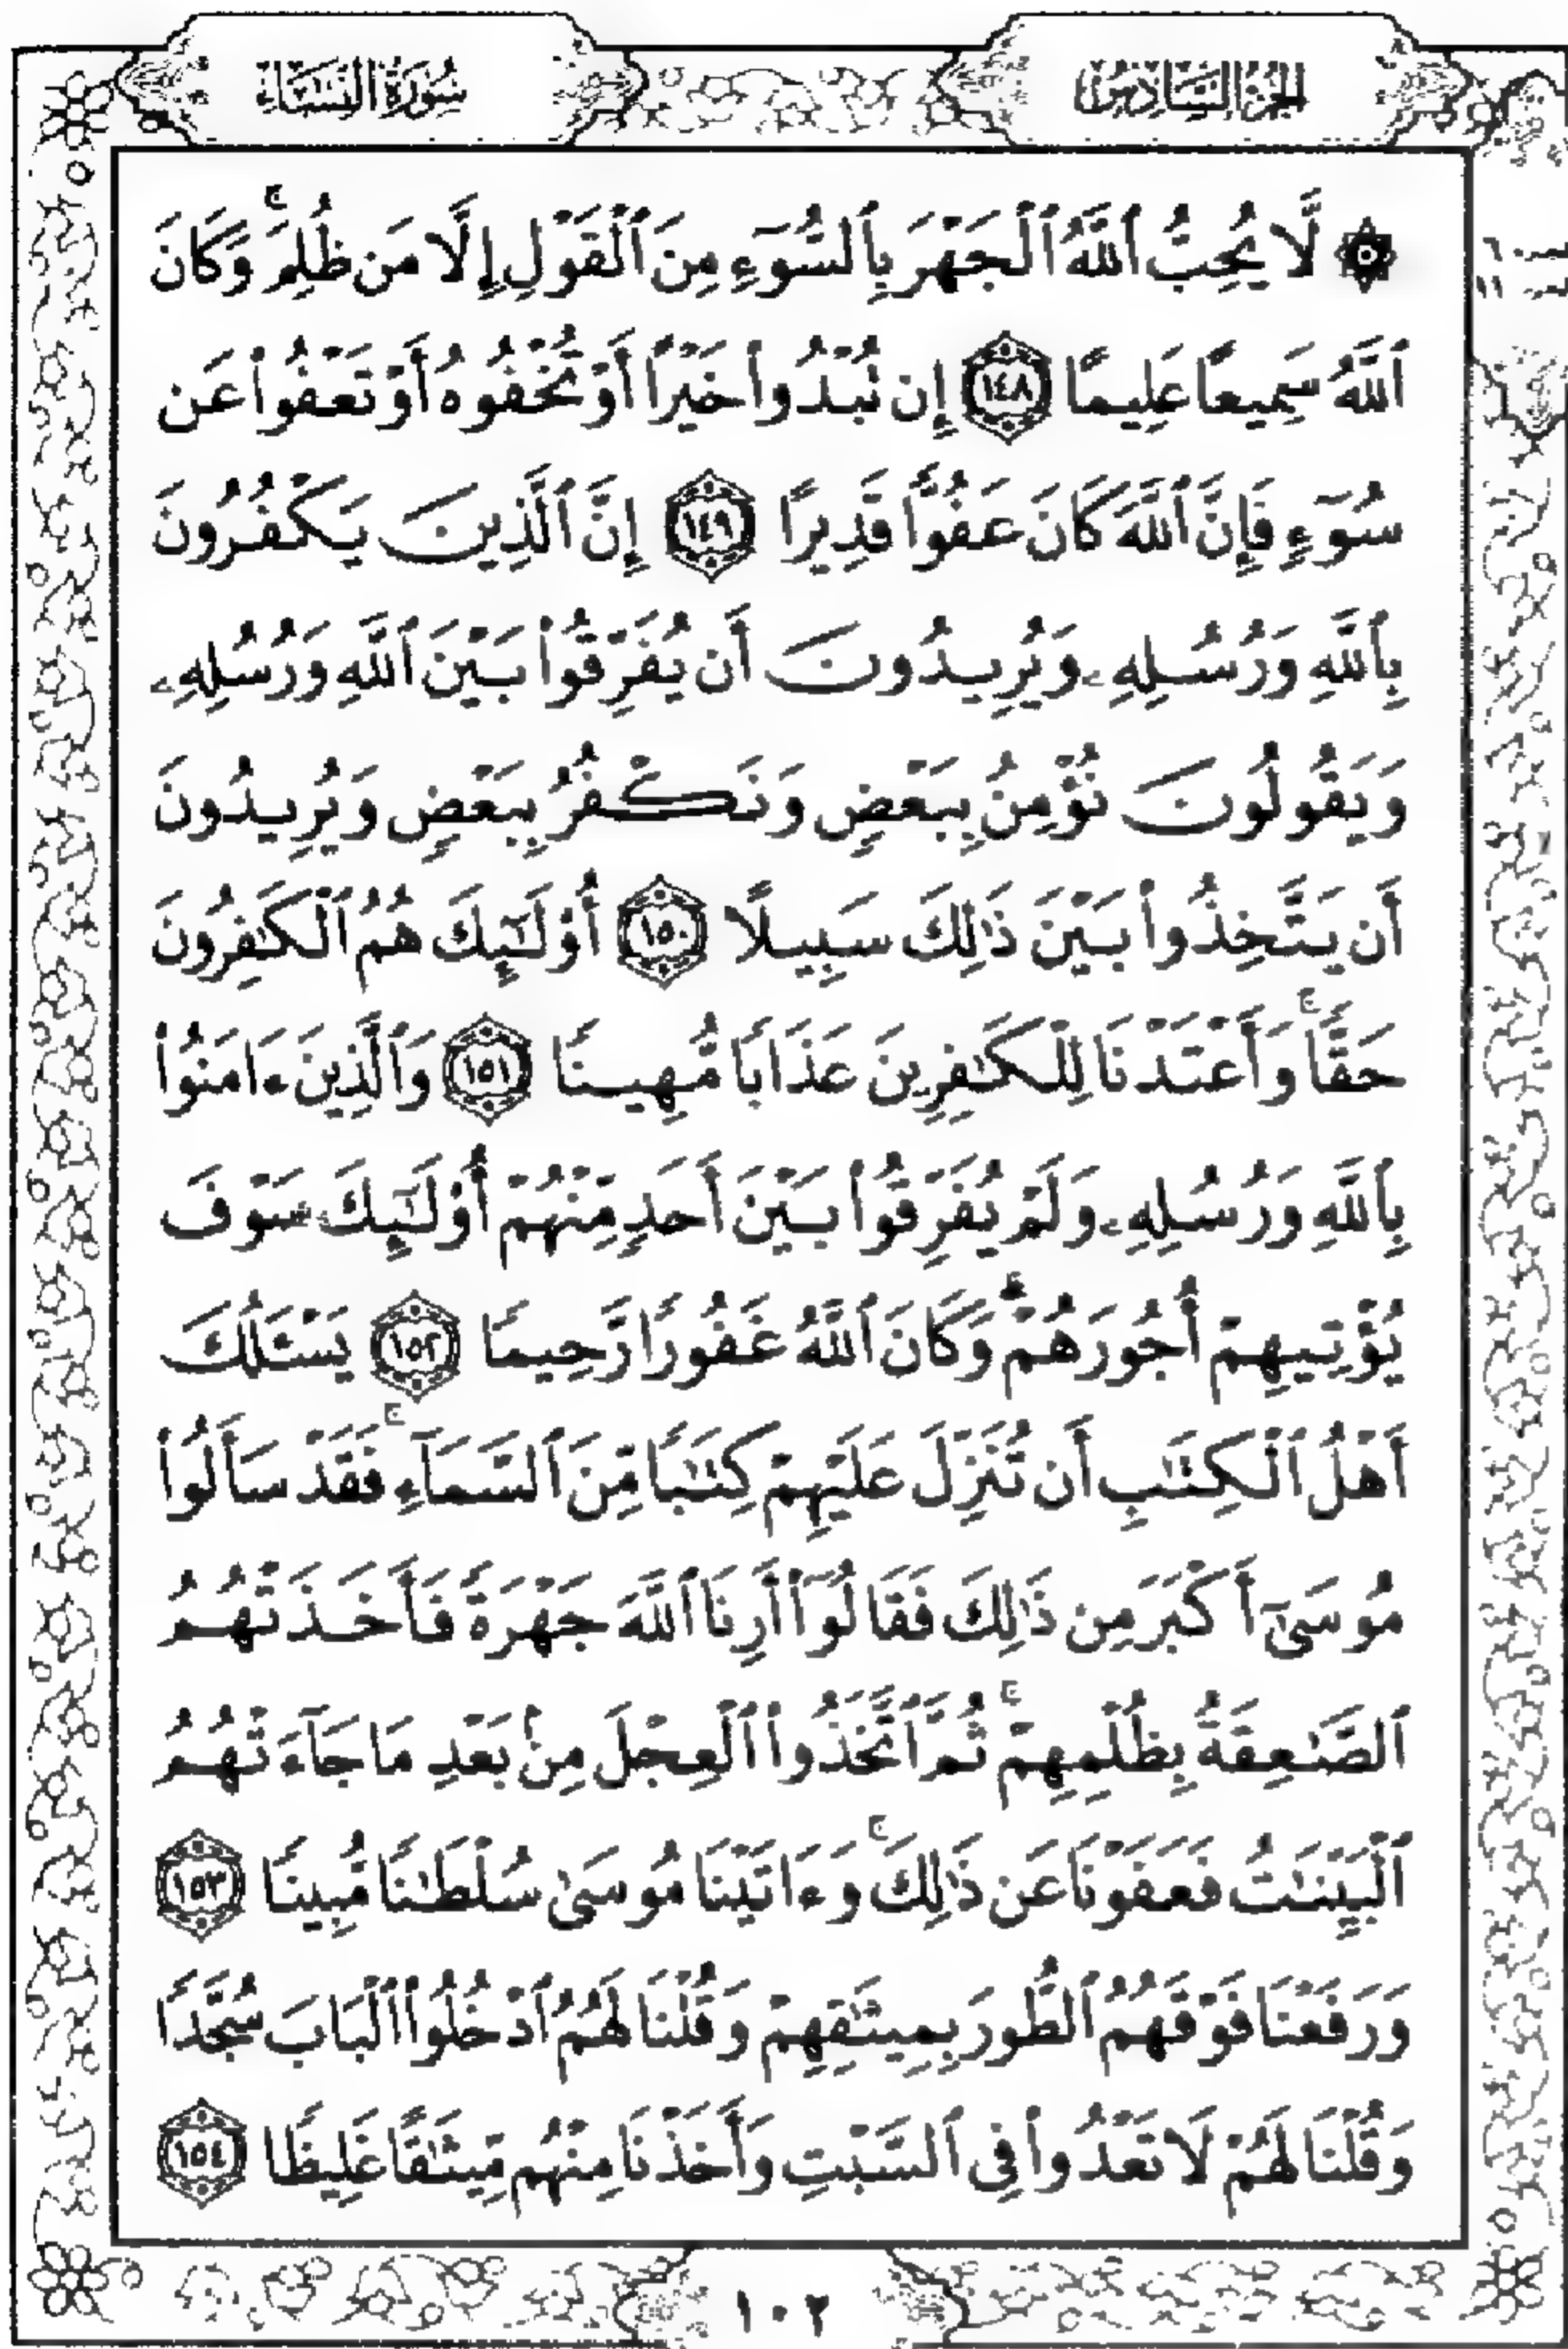 الجزء السادس
سورة النساء
۞ لَّا يُحِبُّ ٱللَّهُ ٱلْجَهْرَ بِٱلسُّوٓءِ مِنَ ٱلْقَوْلِ إِلَّا مَن ظُلِمَ ۚ وَكَانَ
ٱللَّهُ سَمِيعًا عَلِيمًا ١٤٨ إِن تُبْدُوا۟ خَيْرًا أَوْ تُخْفُوهُ أَوْ تَعْفُوا۟ عَن
سُوٓءٍ فَإِنَّ ٱللَّهَ كَانَ عَفُوًّا قَدِيرًا ١٤٩ إِنَّ ٱلَّذِينَ يَكْفُرُونَ
بِٱللَّهِ وَرُسُلِهِۦ وَيُرِيدُونَ أَن يُفَرِّقُوا۟ بَيْنَ ٱللَّهِ وَرُسُلِهِۦ
وَيَقُولُونَ نُؤْمِنُ بِبَعْضٍ وَنَكْفُرُ بِبَعْضٍ وَيُرِيدُونَ
أَن يَتَّخِذُوا۟ بَيْنَ ذَٰلِكَ سَبِيلًا ١٥٠ أُو۟لَـٰٓئِكَ هُمُ ٱلْكَـٰفِرُونَ
حَقًّا ۚ وَأَعْتَدْنَا لِلْكَـٰفِرِينَ عَذَابًا مُّهِينًا ١٥١ وَٱلَّذِينَ ءَامَنُوا۟
بِٱللَّهِ وَرُسُلِهِۦ وَلَمْ يُفَرِّقُوا۟ بَيْنَ أَحَدٍ مِّنْهُمْ أُو۟لَـٰٓئِكَ سَوْفَ
يُؤْتِيهِمْ أُجُورَهُمْ ۗ وَكَانَ ٱللَّهُ غَفُورًا رَّحِيمًا ١٥٢ يَسْـَٔلُكَ
أَهْلُ ٱلْكِتَـٰبِ أَن تُنَزِّلَ عَلَيْهِمْ كِتَـٰبًا مِّنَ ٱلسَّمَآءِ ۚ فَقَدْ سَأَلُوا۟
مُوسَىٰٓ أَكْبَرَ مِن ذَٰلِكَ فَقَالُوٓا۟ أَرِنَا ٱللَّهَ جَهْرَةً فَأَخَذَتْهُمُ
ٱلصَّـٰعِقَةُ بِظُلْمِهِمْ ۚ ثُمَّ ٱتَّخَذُوا۟ ٱلْعِجْلَ مِنۢ بَعْدِ مَا جَآءَتْهُمُ
ٱلْبَيِّنَـٰتُ فَعَفَوْنَا عَن ذَٰلِكَ ۚ وَءَاتَيْنَا مُوسَىٰ سُلْطَـٰنًا مُّبِينًا ١٥٣
وَرَفَعْنَا فَوْقَهُمُ ٱلطُّورَ بِمِيثَـٰقِهِمْ وَقُلْنَا لَهُمُ ٱدْخُلُوا۟ ٱلْبَابَ سُجَّدًا
وَقُلْنَا لَهُمْ لَا تَعْدُوا۟ فِى ٱلسَّبْتِ وَأَخَذْنَا مِنْهُم مِّيثَـٰقًا غَلِيظًا ١٥٤
١٠٢